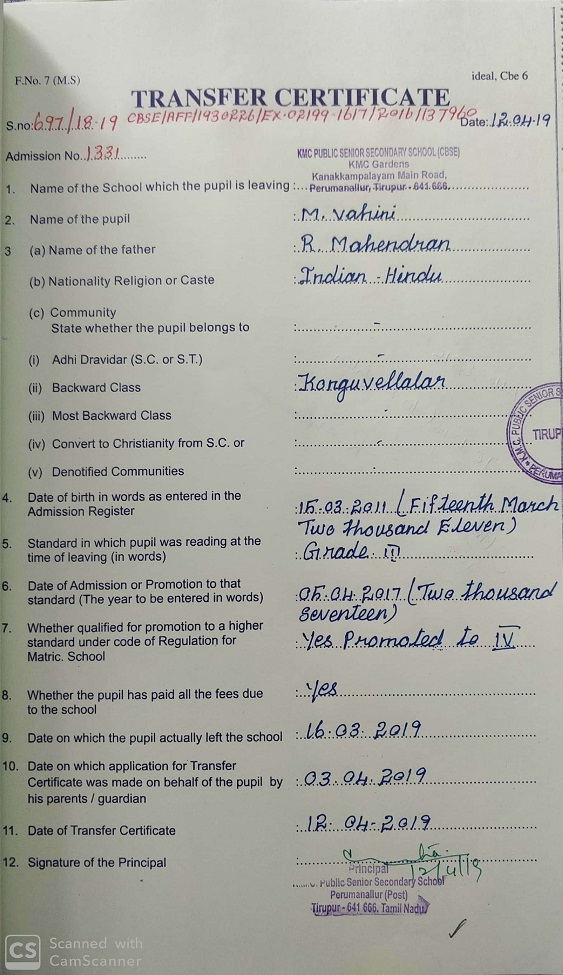 F.No. 7 (M.S)
ideal, Cbe 6
TRANSFER CERTIFICATE
S.no: 697/18-19 CBSE/AFF/1930226/EX-02199-1617/2016/137960 Date: 12.04.19
Admission No. 1331
KMC PUBLIC SENIOR SECONDARY SCHOOL (CBSE)
KMC Gardens
Kanakkampalayam Main Road,
1. Name of the School which the pupil is leaving : Perumanallur, Tirupur - 641 666.
2. Name of the pupil : M. Vahini
3 (a) Name of the father : R. Mahendran
(b) Nationality Religion or Caste : Indian - Hindu
(c) Community
State whether the pupil belongs to : -
(i) Adhi Dravidar (S.C. or S.T.) : -
(ii) Backward Class : Konguvellalar
(iii) Most Backward Class : -
(iv) Convert to Christianity from S.C. or : -
(v) Denotified Communities : -
K.M.C. PUBLIC SENIOR S
TIRUP
PERUMA
4. Date of birth in words as entered in the : 15.03.2011 (Fifteenth March
Admission Register Two thousand Eleven)
5. Standard in which pupil was reading at the
time of leaving (in words) : Grade. III
6. Date of Admission or Promotion to that : 05.04.2017 (Two thousand
standard (The year to be entered in words) seventeen)
7. Whether qualified for promotion to a higher
standard under code of Regulation for : Yes Promoted to IV
Matric. School
8. Whether the pupil has paid all the fees due : Yes
to the school
9. Date on which the pupil actually left the school : 16.03.2019
10. Date on which application for Transfer
Certificate was made on behalf of the pupil by : 03.04.2019
his parents / guardian
11. Date of Transfer Certificate : 12-04-2019
12. Signature of the Principal :
12/4/19
Principal
Public Senior Secondary School
Perumanallur (Post)
Tirupur - 641 666. Tamil Nadu
CS Scanned with
CamScanner